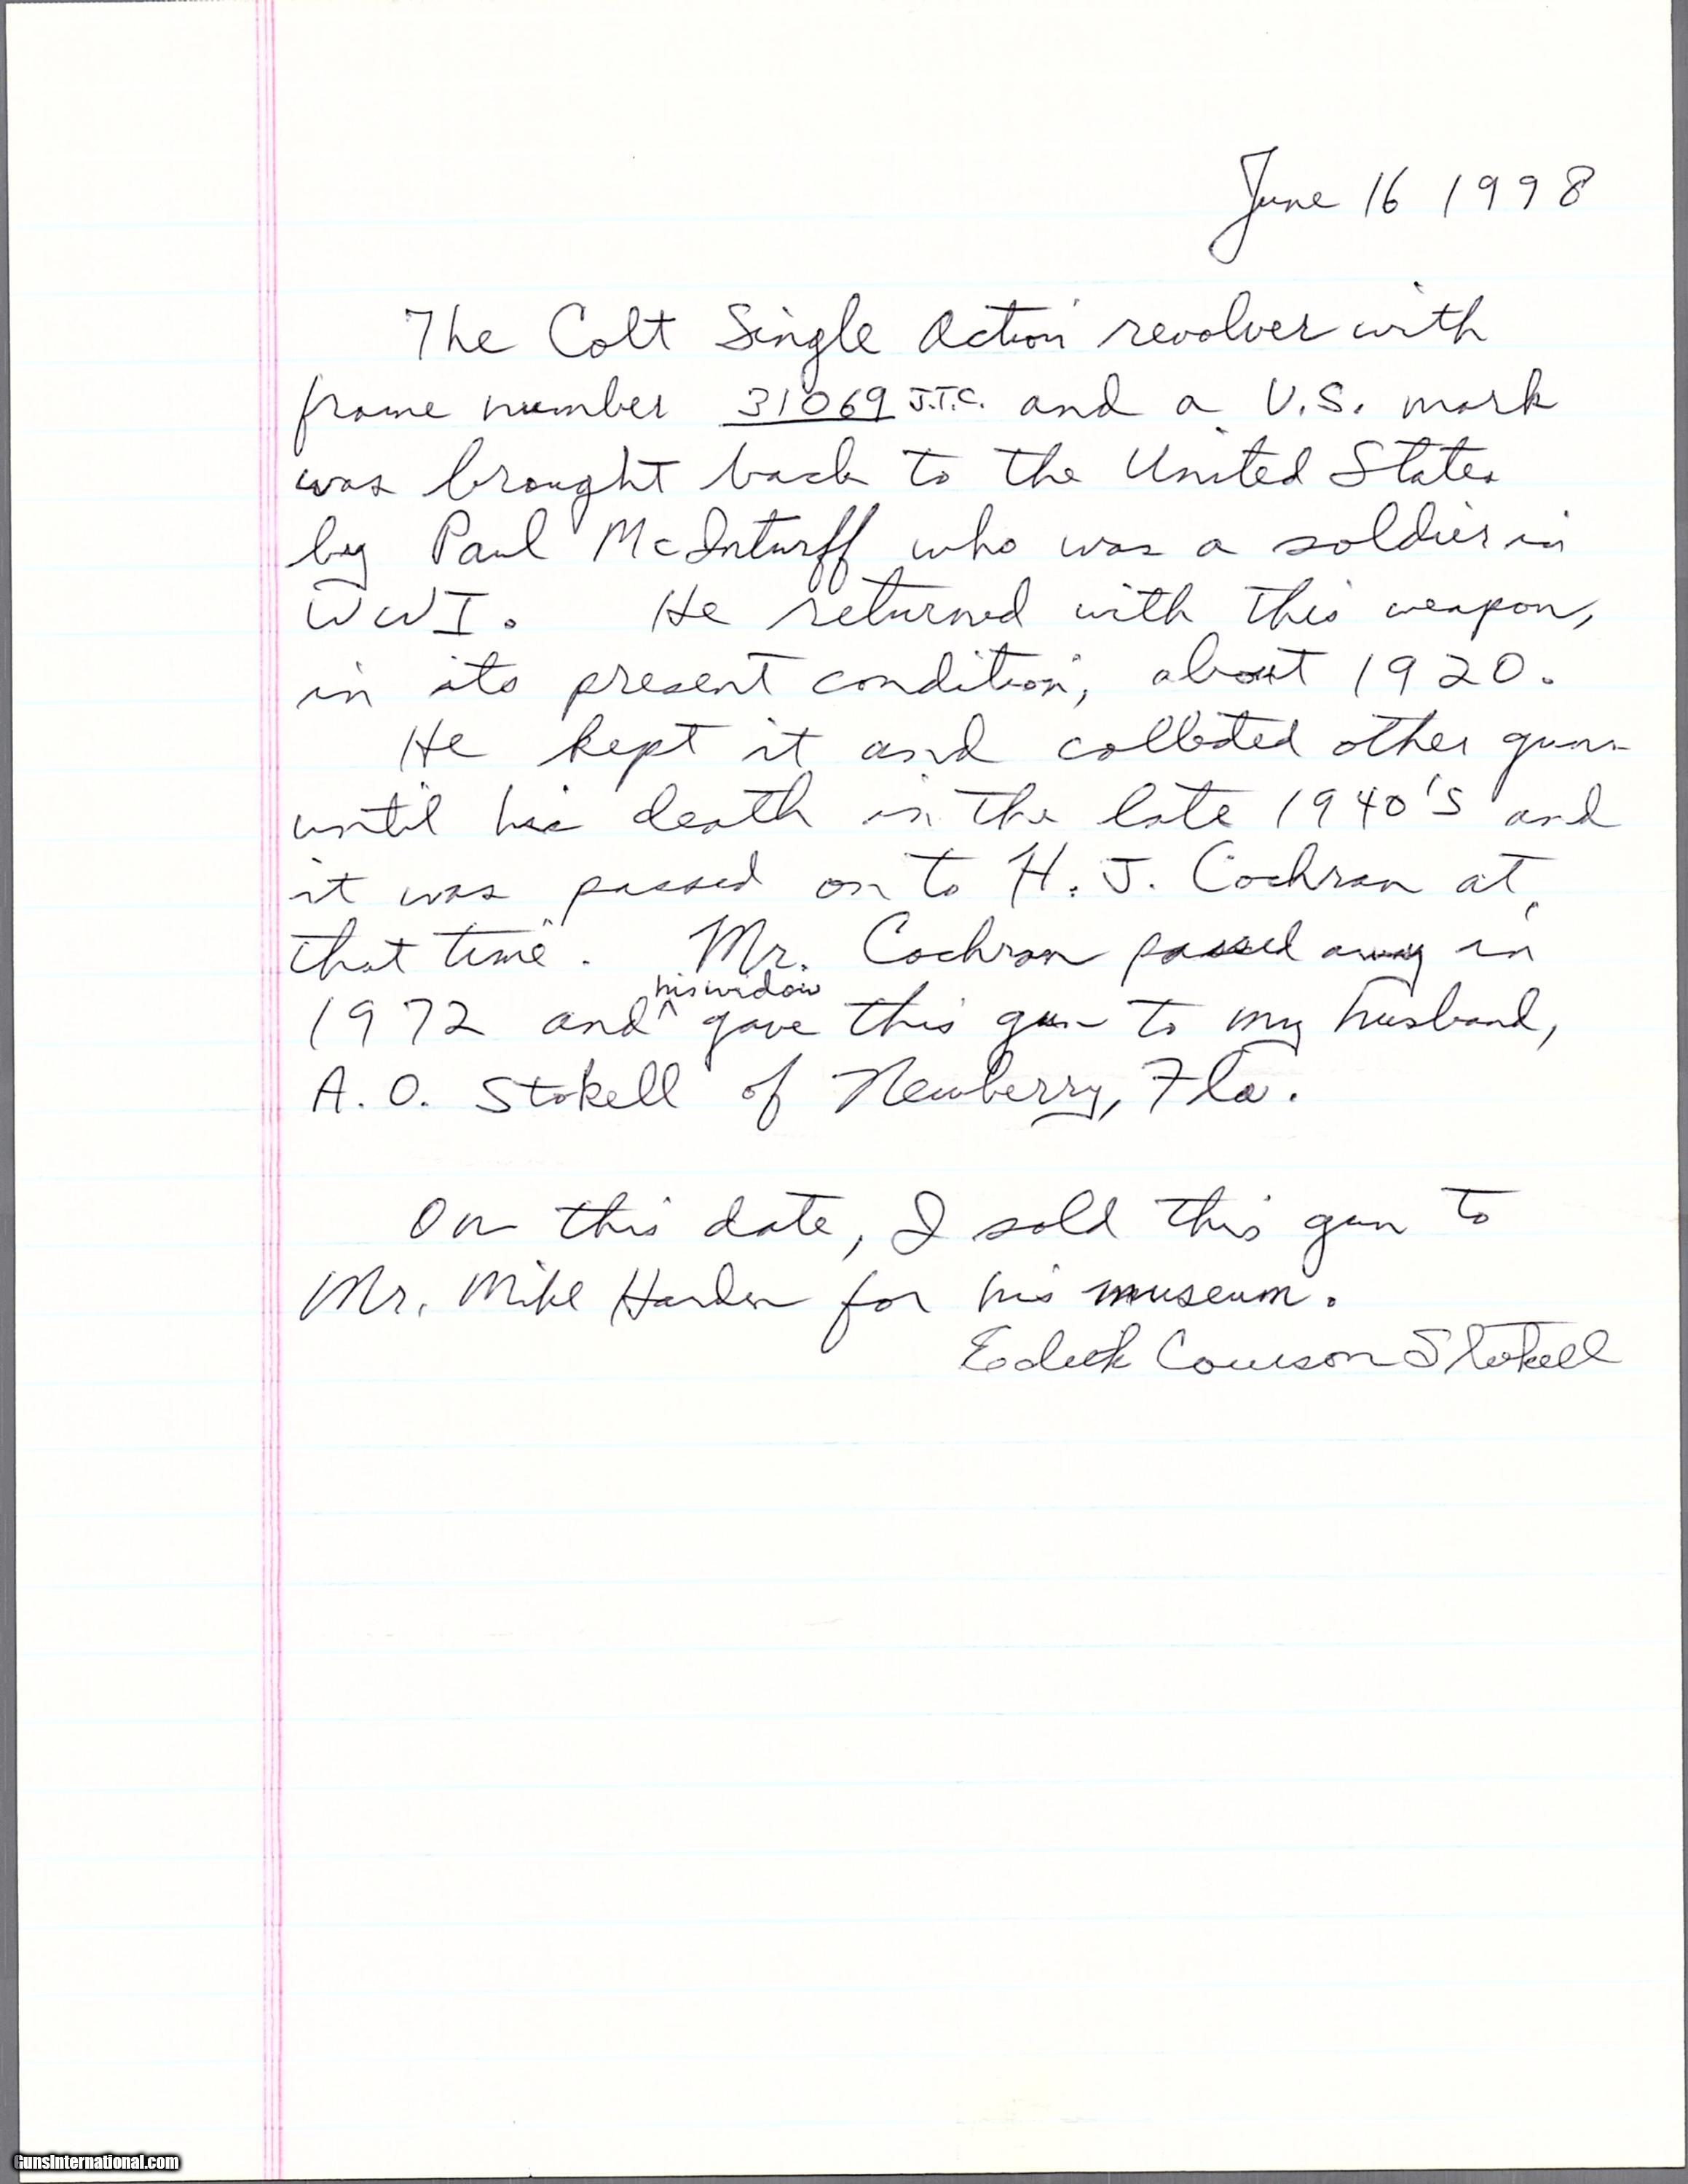 June 16 1998
The Colt Single Action revolver with
frame number 31069 J.T.C. and a U.S. mark
was brought back to the United States
by Paul McInturff who was a soldier in
WWI. He returned with this weapon,
in its present condition, about 1920.
He kept it and collected other guns
until his death in the late 1940's and
it was passed on to H. J. Cochran at
that time. Mr. Cochran passed away in
his widow
1972 and ^ gave this gun to my husband,
A. O. Stokell of Newberry, Fla.
On this date, I sold this gun to
Mr. Mike Harden for his museum.
Edith Couson Stokell
GunsInternational.com